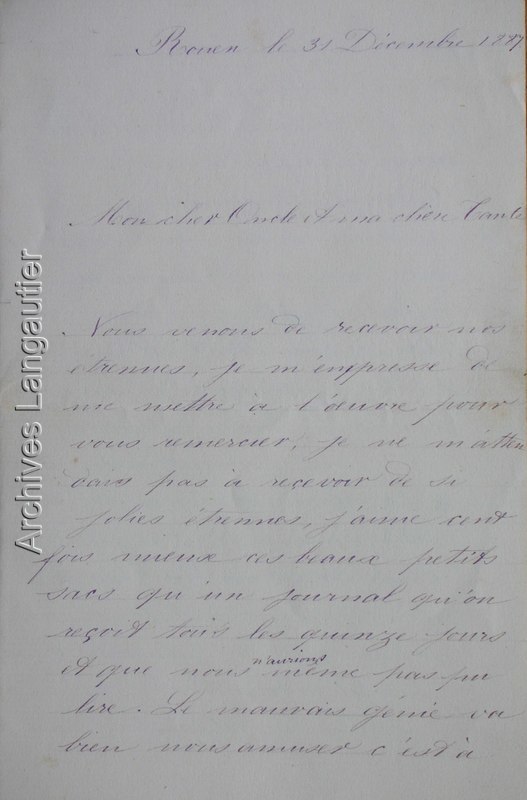 Rouen le 31 Décembre 1887
Mon cher Oncle et ma chère Tante
Nous venons de recevoir nos
étrennes, je m'empresse de
me mettre à l'œuvre pour
vous remercier, je ne m'atten
dais pas à reçevoir de si
jolies étrennes, j'aime cent
fois mieux ces beaux petits
sacs qu'un journal qu'on
reçoit tous les quinze jours
et que nous n'aurions même pas pu
lire. Le mauvais génie va
bien nous amuser c'est à
Archives Langautier